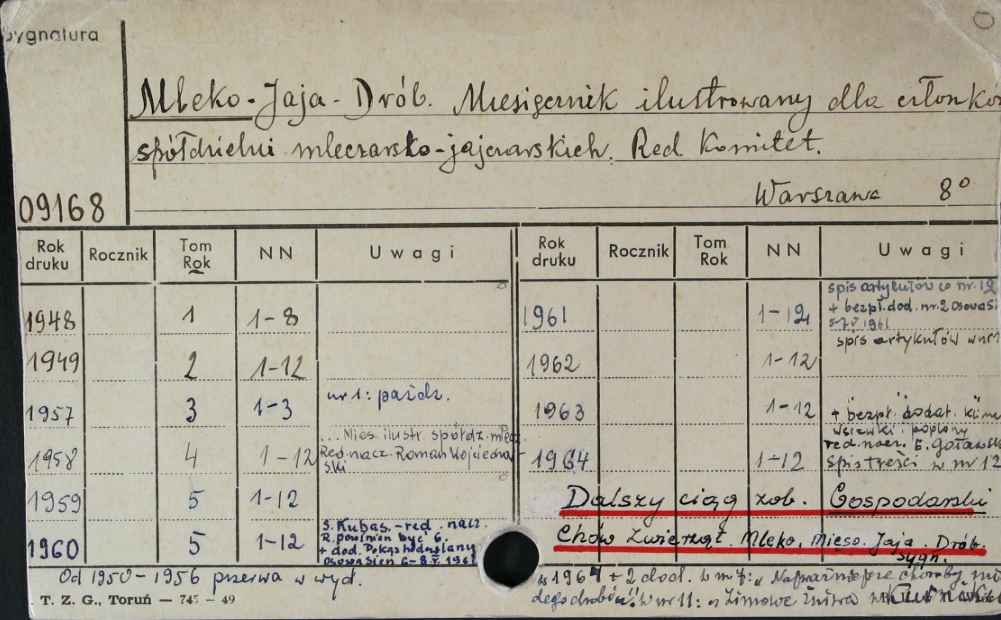 Sygnatura
Mleko-Jaja-Drób. Miesięcznik ilustrowany dla
spółdzielni mleczarsko-jajczarskich. Red Komitet.
Warszawa 8°
09168
Rok druku Rocznik Tom Rok NN Uwagi
1948 1 1-8
1949 2 1-12
1957 3 1-3 nr 1: paźdz.
1958 4 1-12 ...Mies. ilustr. spółdz. mlecz.
Red. nacz. Roman Wojciechowski
1959 5 1-12
1960 5 1-12 S. Kubas. - red. nacz.
R. powinien być 6.
+ dod.
Rok druku Rocznik Tom Rok NN Uwagi
1961 1-12 spis artykułów w nr. 12
+ bezpł. dod. nr. 2
1962 1-12 spis artykułów w nr
1963 1-12 + bezpł. dodat.
red. nacz.
1964 1-12 Spis treści w nr 12
Dalszy ciąg zob. Gospodarski
Chów Zwierząt. Mleko. Mięso. Jaja. Drób.
sygn.
Od 1950-1956 przerwa w wyd.
w 1964 + 2 dod. w nr 7: „Najważniejsze choroby
w nr 11: „Zimowe
T. Z. G., Toruń — 745 - 49